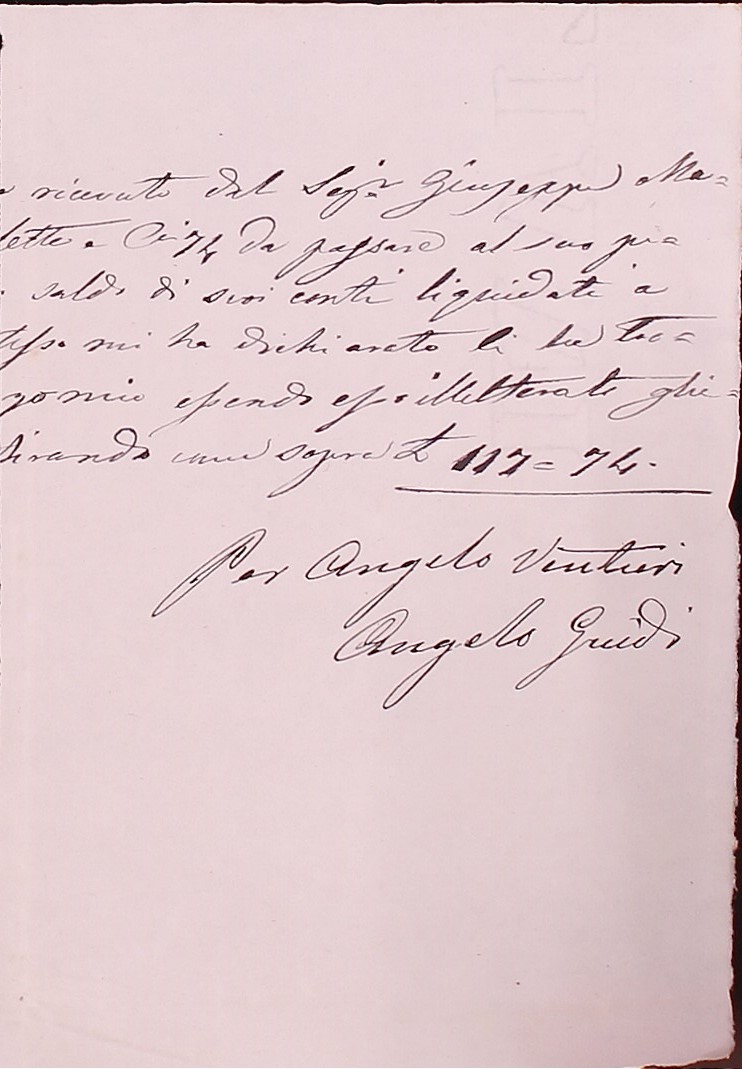 ricevuto dal Sigr Giuseppe Ma=
lette e Ci 74 da passare al suo pa=
saldo di suoi conti liquidati a
tesso mi ha dichiarato li
mio essendo esso illetterato glie=
tirando come sopra £ 117=74.
Per Angelo Ventieri
Angelo Guidi